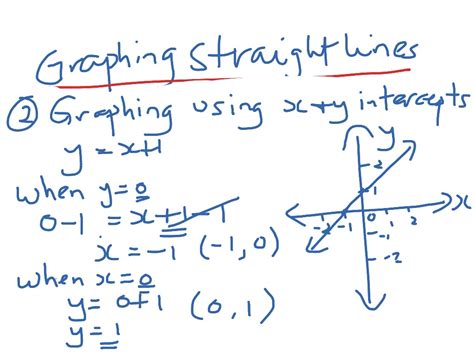 Graphing Straight Lines
② Graphing using x+y intercepts
y = x+1
when y=0
0-1 = x+1-1
x = -1 (-1,0)
when x=0
y= 0+1 (0,1)
y=1
y
2
1
-2 -1 0 1 2 x
-1
-2